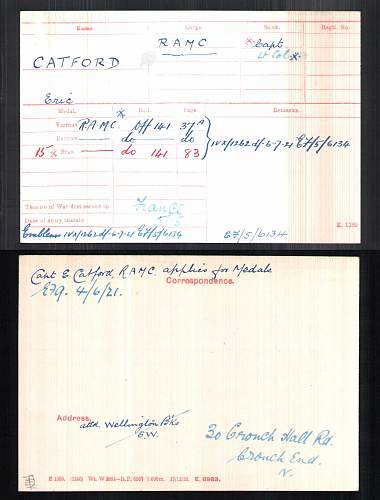 Name. Corps. Rank. Regtl. No.
RAMC × Capt
CATFORD Lt Col ×
Eric
Medal. Roll. Page. Remarks.
Victory × RAMC. Off 141 37A
British do do do IVX/1262 d/- 6-7-21 E7/5/6134
15 × Star do 141 83
Theatre of War first served in France
Date of entry therein
Emblems IVX/1262 d/- 6-7-21 E7/5/6134 E7/5/6134
K. 1380
Capt E Catford, RAMC. applies for Medals
Correspondence.
E79. 4/6/21.
Address.
attd. Wellington Bks
S.W.
30 Crouch Hall Rd.
Crouch End.
N.